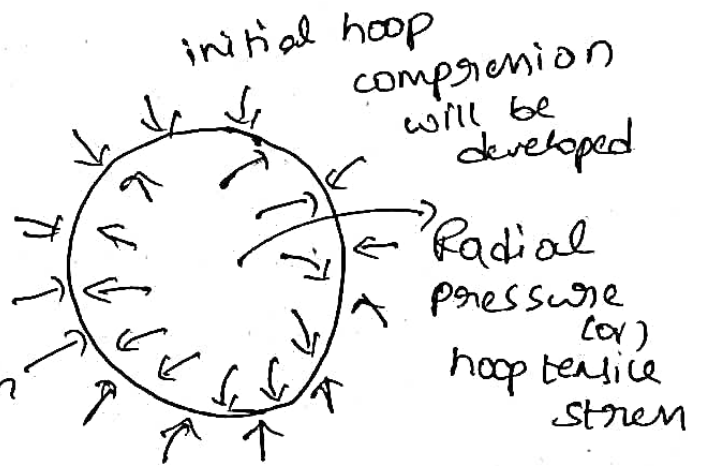 initial hoop
compression
will be
developed
Radial
pressure
(or)
hoop tensile
stress